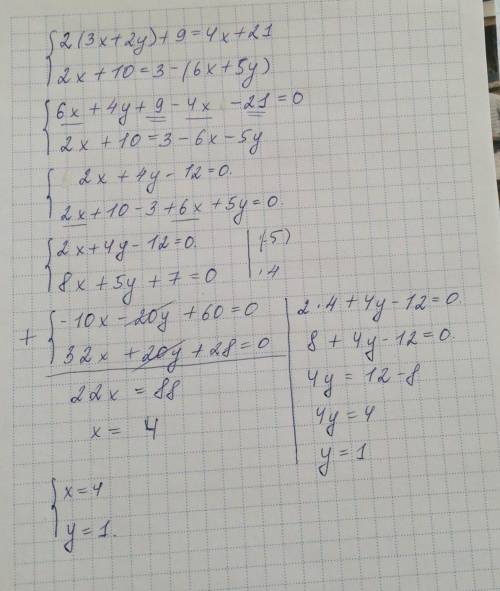 {2(3x+2y)+9=4x+21
2x+10=3-(6x+5y)
{6x+4y+9-4x-21=0
2x+10=3-6x-5y
{2x+4y-12=0.
2x+10-3+6x+5y=0.
{2x+4y-12=0. | (-5)
8x+5y+7=0 | ·4
+ {-10x-20y+60=0
32x+20y+28=0
22x=88
x= 4
2·4+4y-12=0.
8+4y-12=0.
4y=12-8
4y=4
y=1
{x=4
y=1.